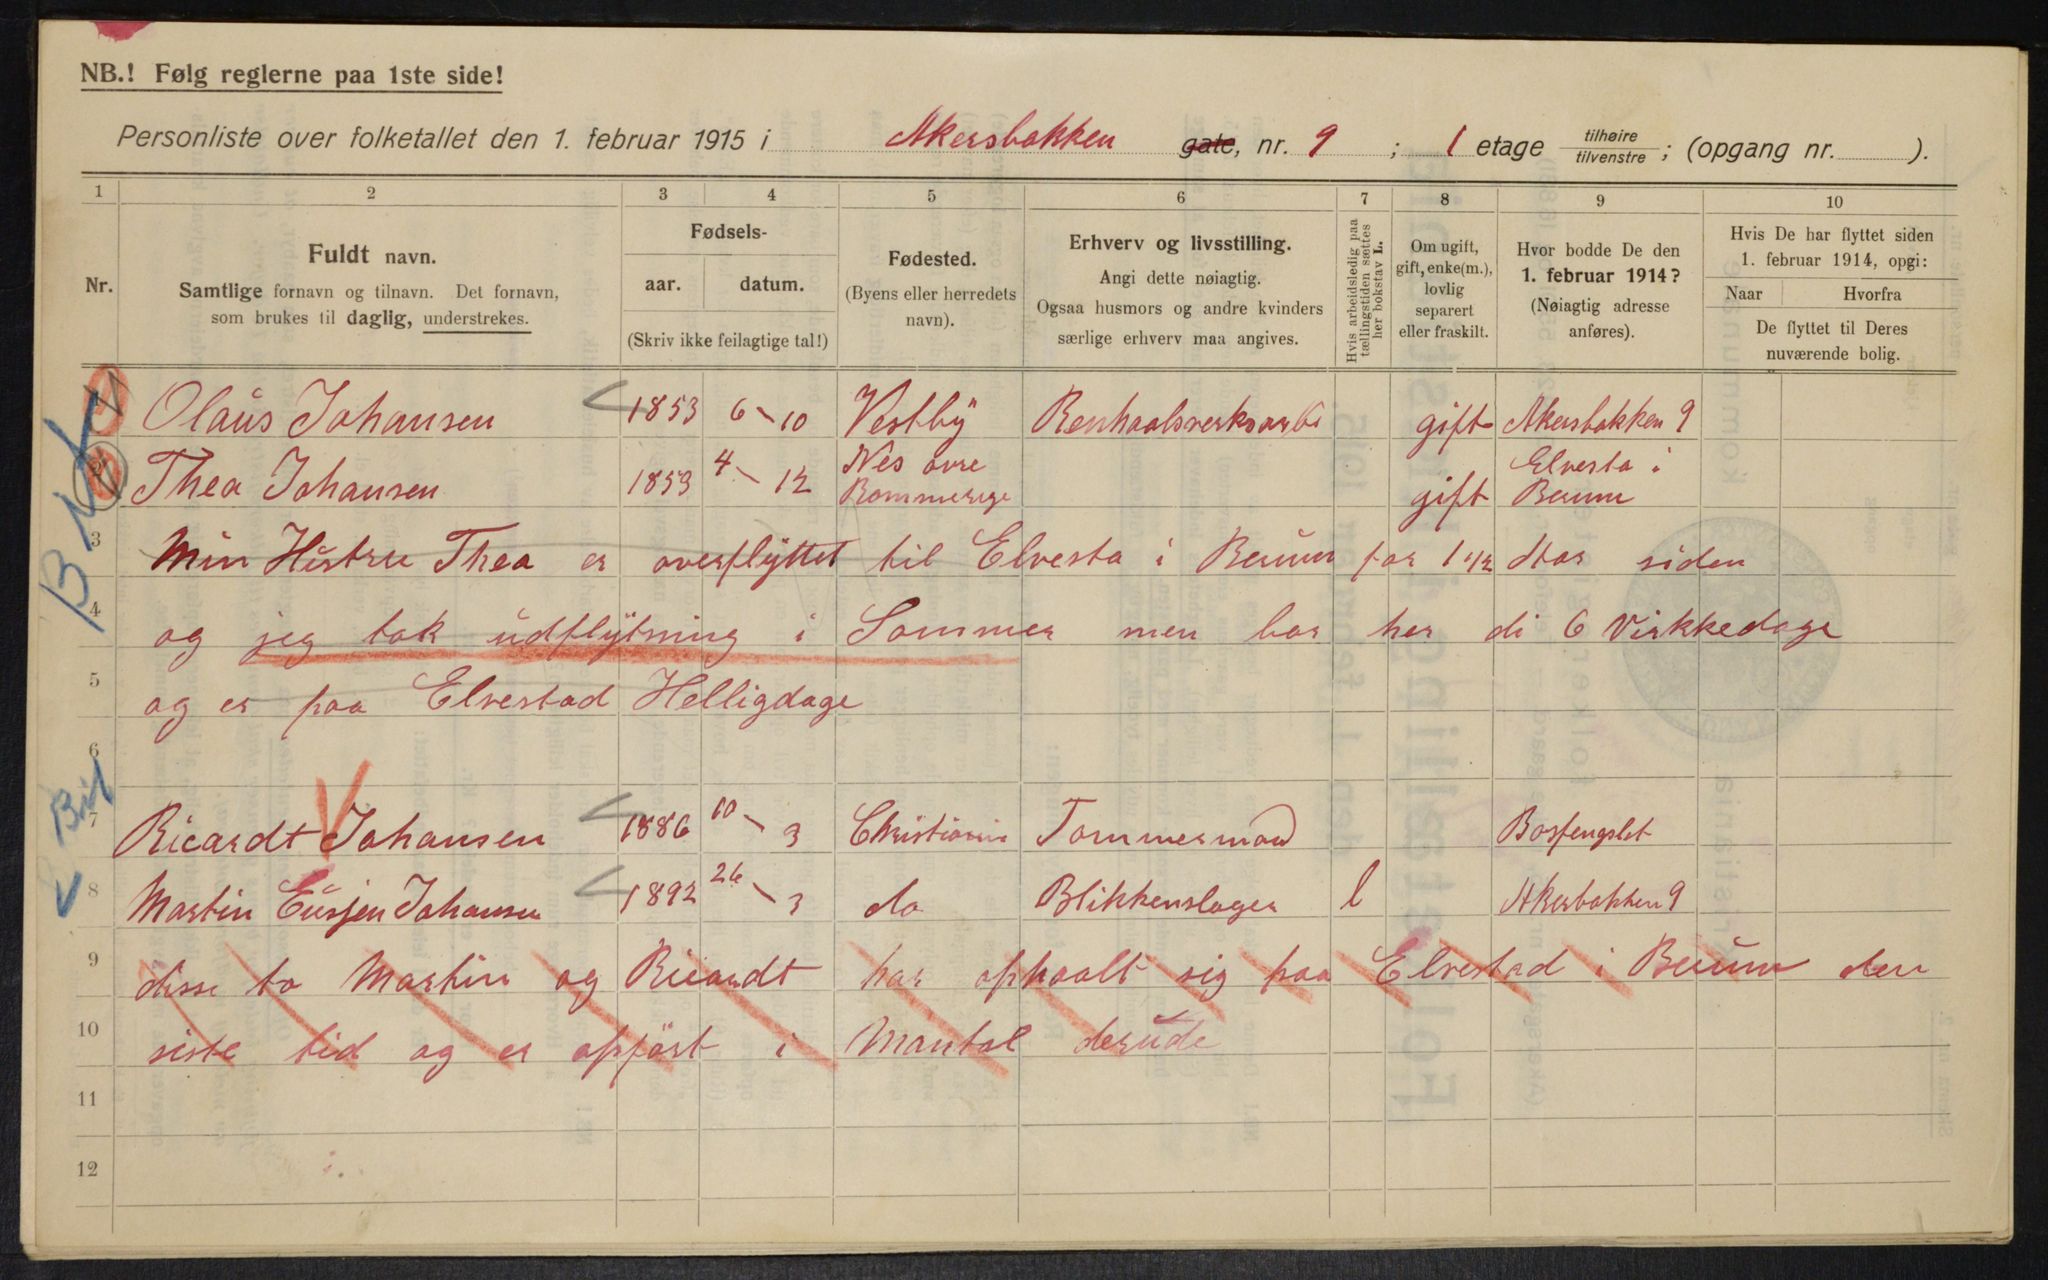 NB.! Følg reglerne paa 1ste side!
Personliste over folketallet den 1. februar 1915 i Akersbakken gate, nr. 9 ; 1 etage tilhøire tilvenstre ; (opgang nr. ).
1 2 3 4 5 6 7 8 9 10
Nr.
Fuldt navn.
Samtlige fornavn og tilnavn. Det fornavn,
som brukes til daglig, understrekes.
Fødsels-
aar. datum.
(Skriv ikke feilagtige tal!)
Fødested.
(Byens eller herredets
navn).
Erhverv og livsstilling.
Angi dette nøiagtig.
Ogsaa husmors og andre kvinders
særlige erhverv maa angives.
Hvis arbeidsledig paa
tællingstiden sættes
her bokstav L.
Om ugift,
gift, enke(m.),
lovlig
separert
eller fraskilt.
Hvor bodde De den
1. februar 1914?
(Nøiagtig adresse
anføres).
Hvis De har flyttet siden
1. februar 1914, opgi:
Naar Hvorfra
De flyttet til Deres
nuværende bolig.
Olaus Johansen 1853 6 - 10 Vestby Renhaalsverksarbi gift Akersbakken 9
2 Thea Johansen 1853 4 - 12 Nes øvre Rommerige gift Elvesta i Berum
3 Min Hustru Thea er overflyttet til Elvesta i Berum for 1 1/2 Aar siden
4 og jeg tok udflytning i Sommer men bor her di 6 Virkkedage
5 og er paa Elvestad Helligdage
6
7 Ricardt Johansen 1886 10 - 3 Christiania Tommermand Bosfengslet
8 Martin Eusjen Johansen 1892 26 - 3 do Blikkenslager l Akersbakken 9
9 disse to Martin og Ricardt har ophaalt sig paa Elvestad i Berum den
10 siste tid og er opført i Mantal derude
11
12